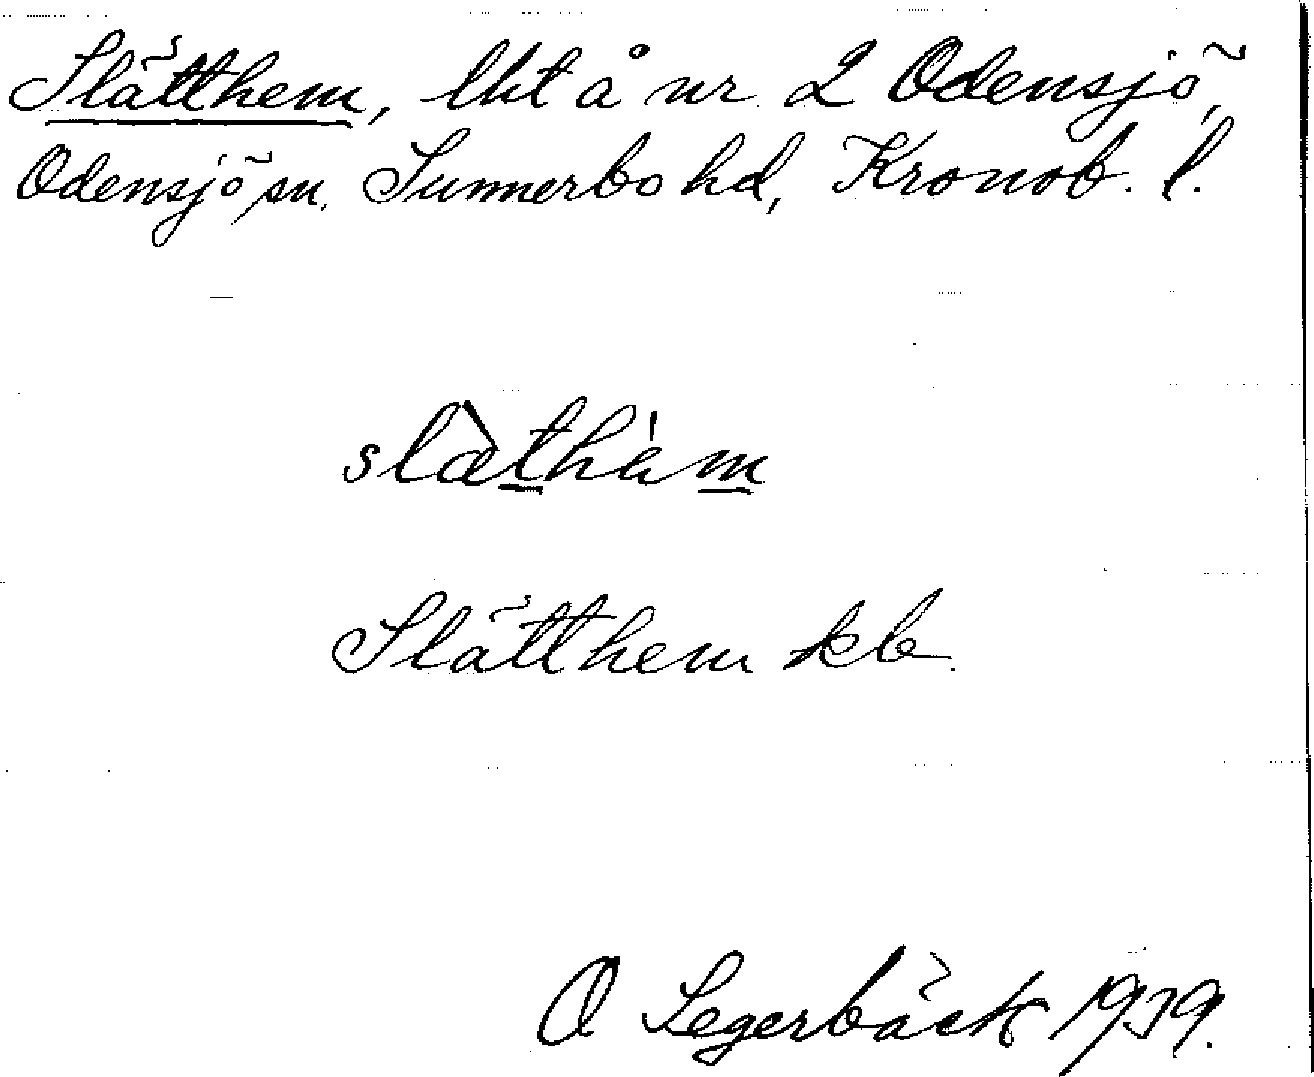 Slätthem, lht å nr 2 Odensjö,
Odensjö sn. Sunnerbo hd, Kronob. l.
slæ̀thèm
Slätthem kb.
O Segerbäck 1939.